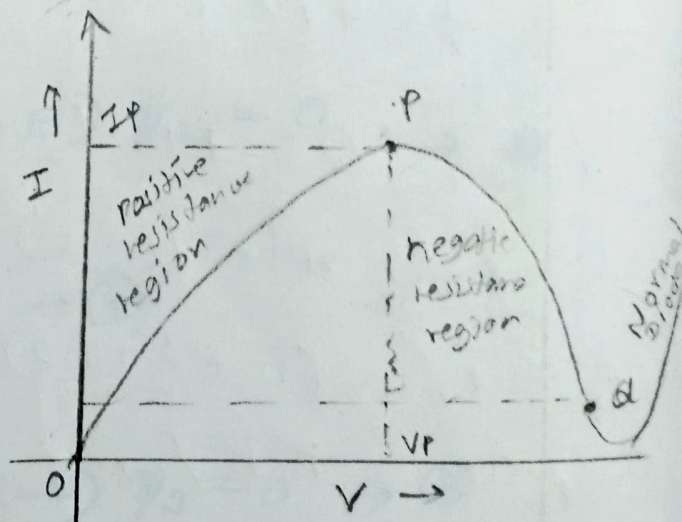 P
IP
I
positive
resistance
region
negatie
resistane
region
Normal
Diode
Q
VP
O
V →